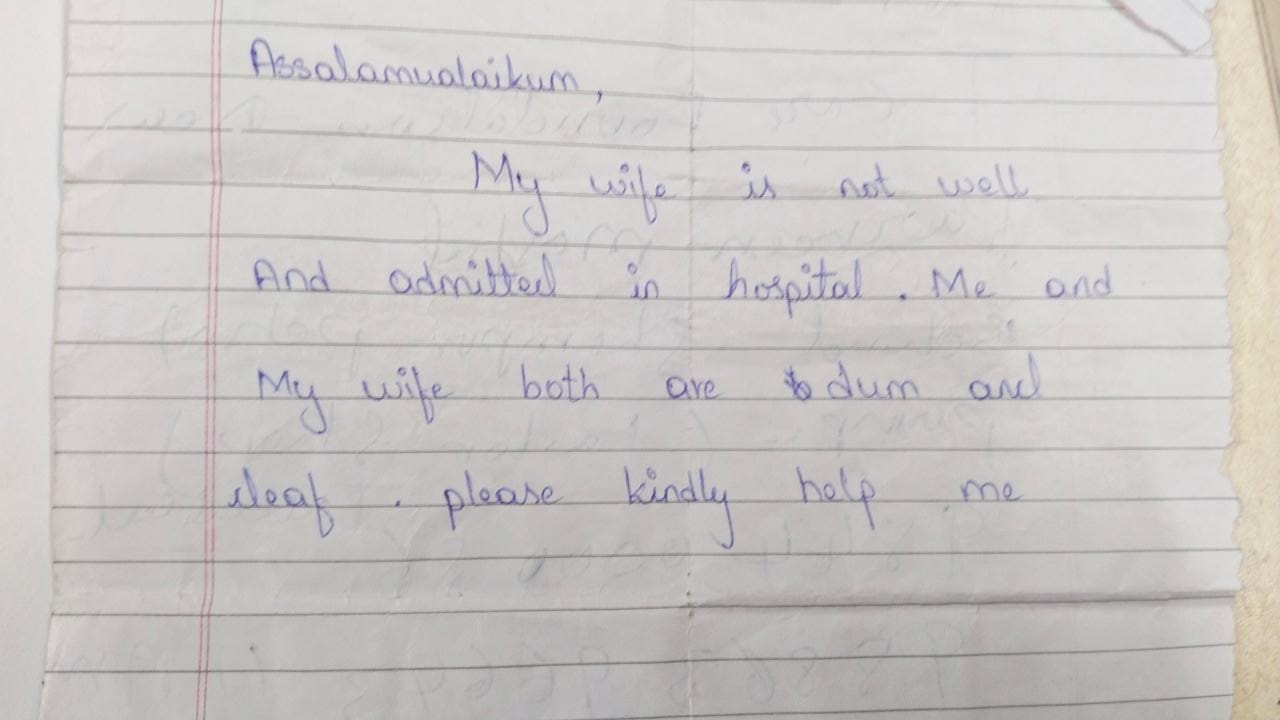 Assalamualaikum,
My wife is not well
And admitted in hospital. Me and
My wife both are dum and
deaf. please kindly help me